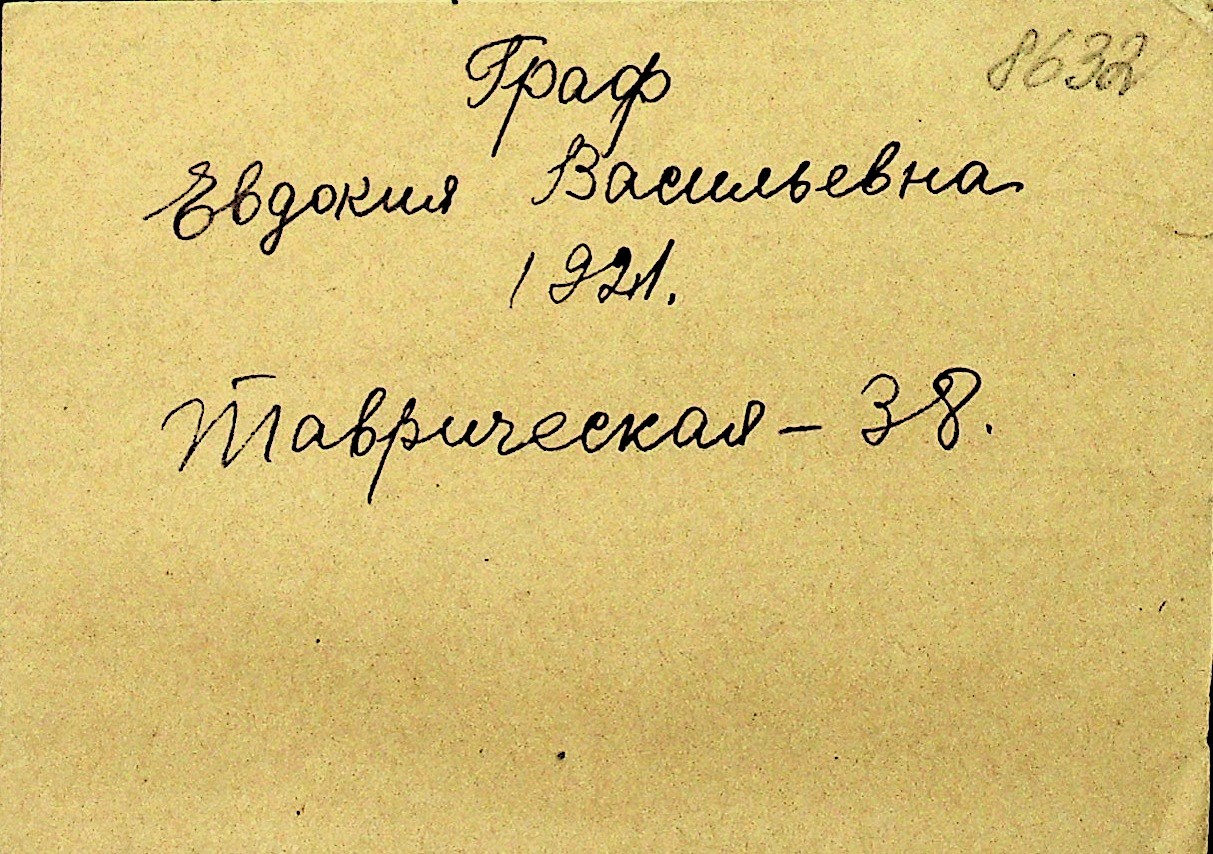 8632
Граф
Евдокия Васильевна
1921.
Таврическая - 38.